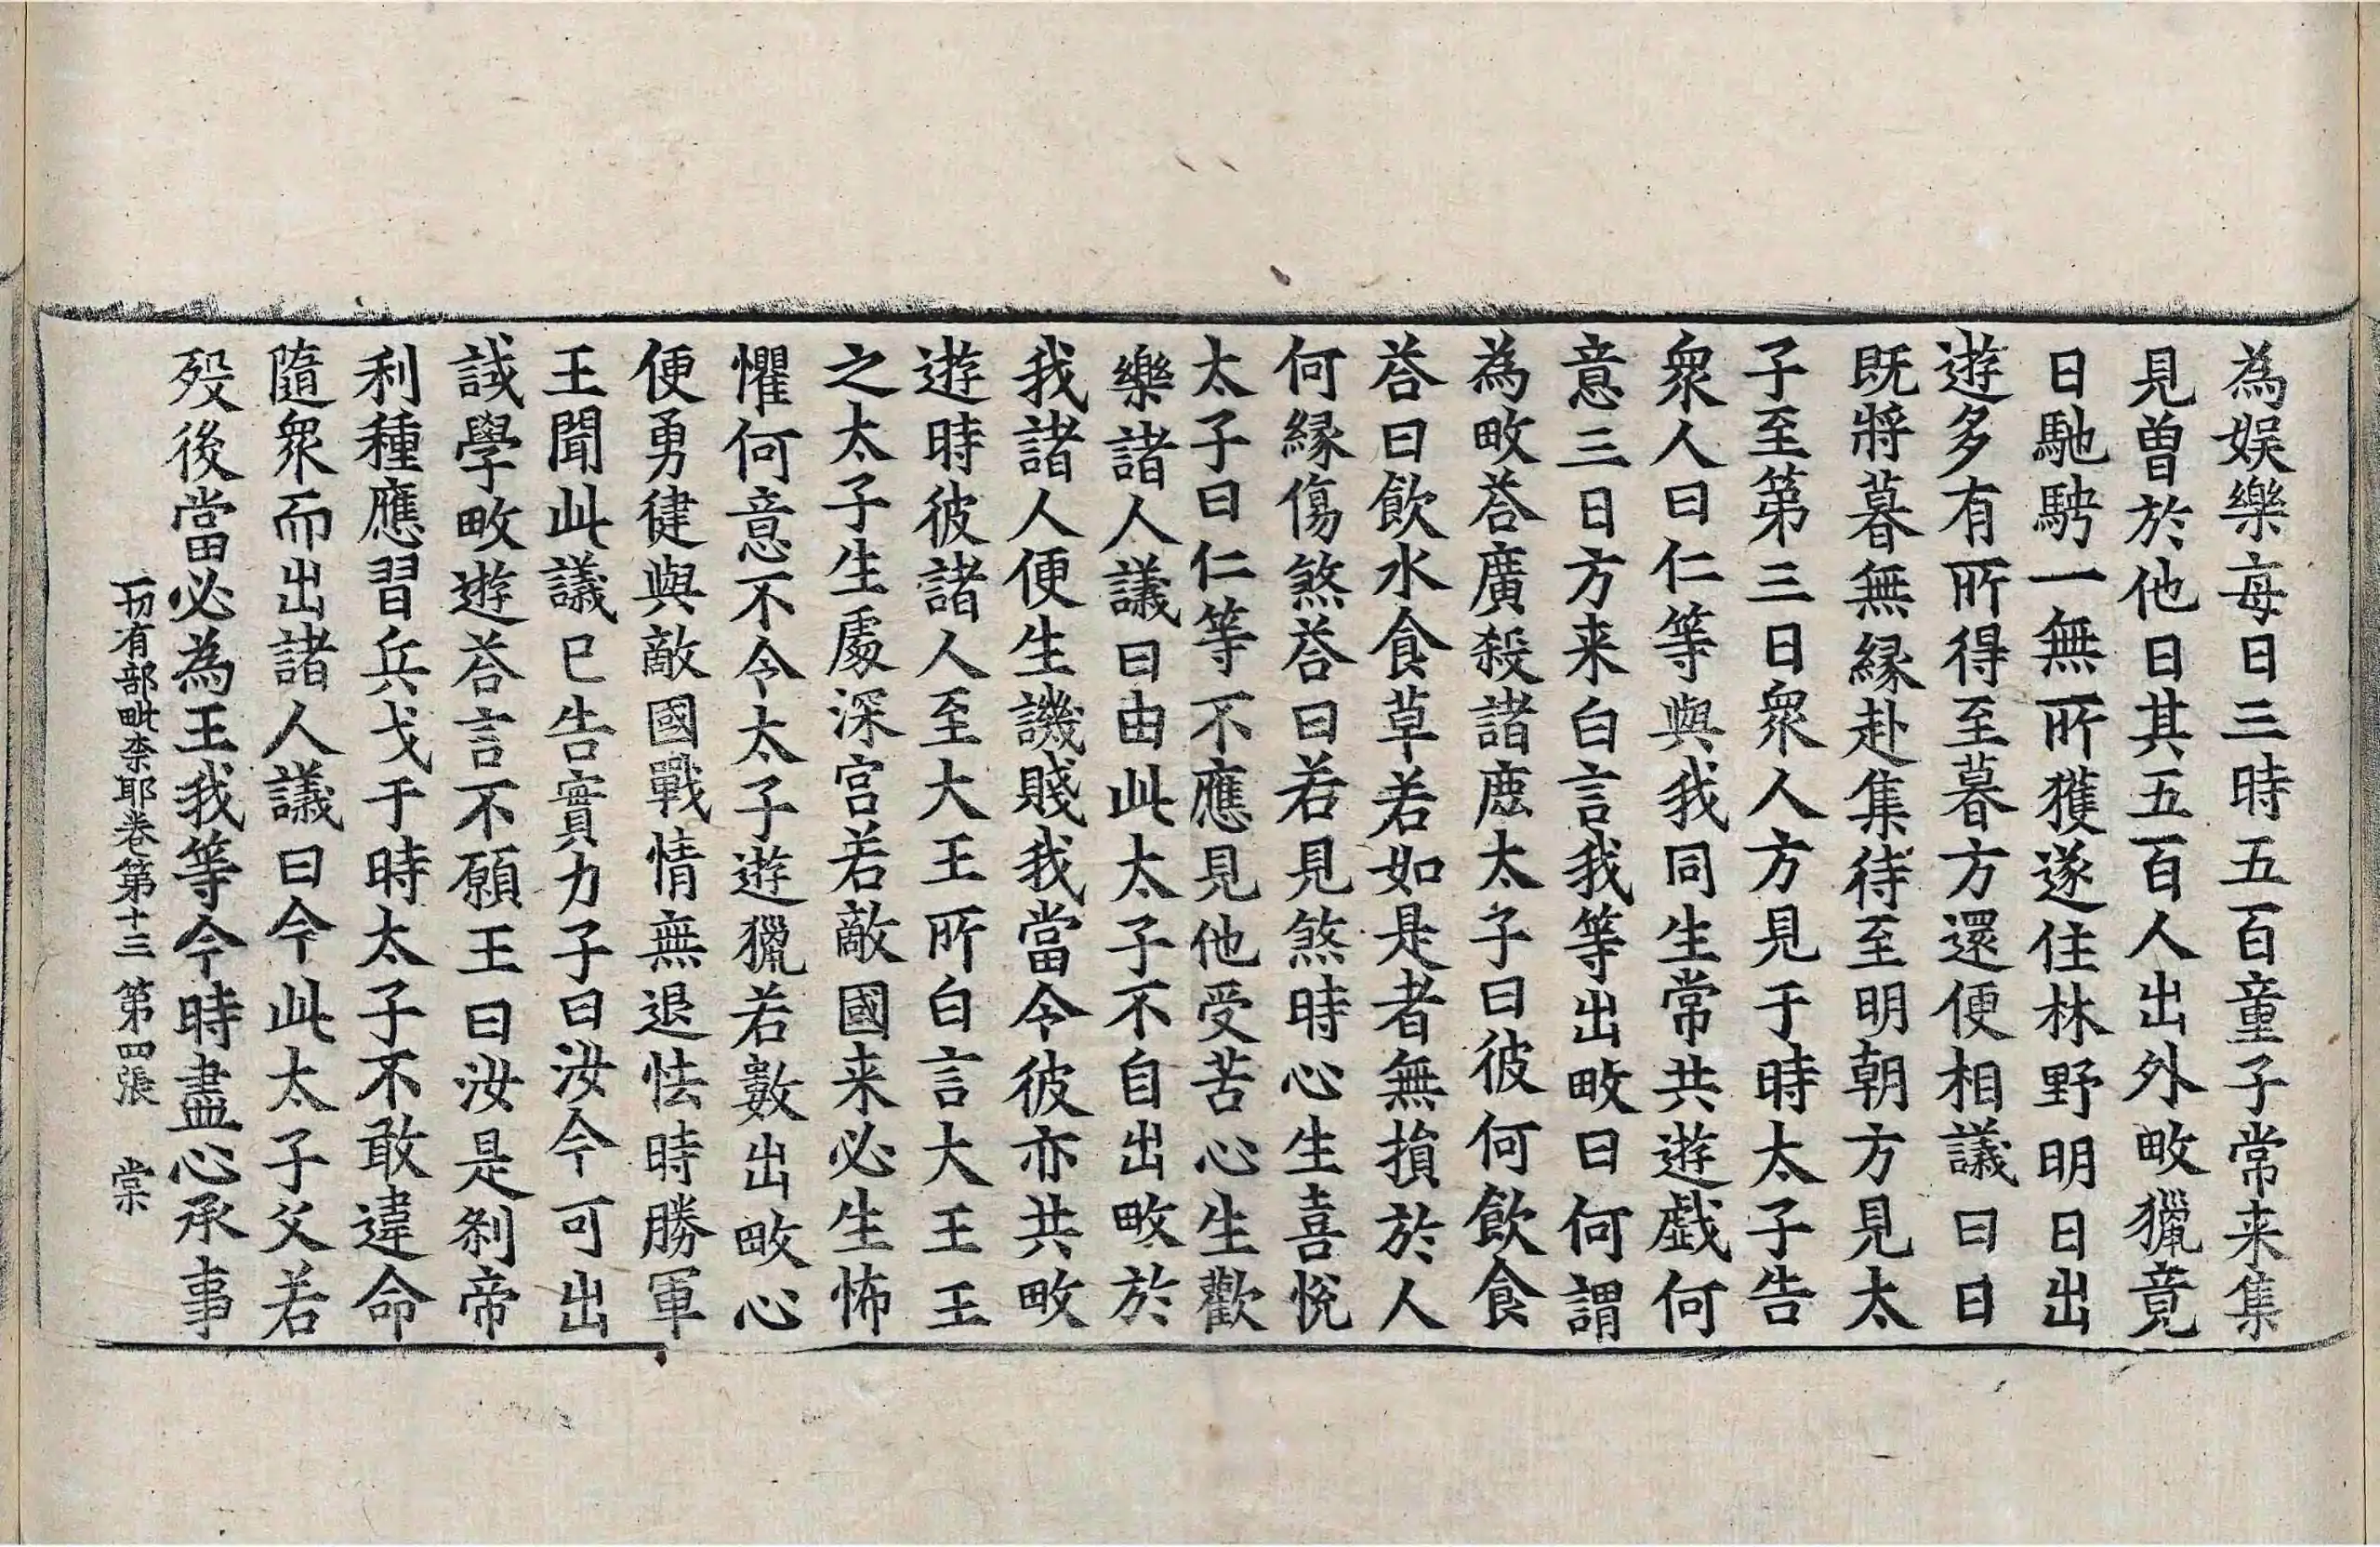 為娱樂每日三時五百童子常来集
見曽於他日其五百人出外畋獵竟
日馳騁一無所獲遂住林野明日出
遊多有所得至暮方還便相議曰日
既將暮無縁赴集待至明朝方見太
子至第三日衆人方見于時太子告
衆人曰仁等與我同生常共遊戯何
意三日方来白言我等出畋曰何謂
為畋荅廣殺諸鹿太子曰彼何飲食
荅曰飲水食草若如是者無損於人
何縁傷煞荅曰若見煞時心生喜悅
太子曰仁等不應見他受苦心生歡
樂諸人議曰由此太子不自出畋於
我諸人便生譏賤我當令彼亦共畋
遊時彼諸人至大王所白言大王王
之太子生處深宫若敵國来必生怖
懼何意不令太子遊獵若數出畋心
便勇健與敵國戰情無退怯時勝軍
王聞此議已告實力子曰汝今可出
誡學畋遊荅言不願王曰汝是刹帝
利種應習兵戈于時太子不敢違命
隨衆而出諸人議曰今此太子父若
歿後當必為王我等今時盡心承事
一切有部毗柰耶卷第十三 第四張 棠